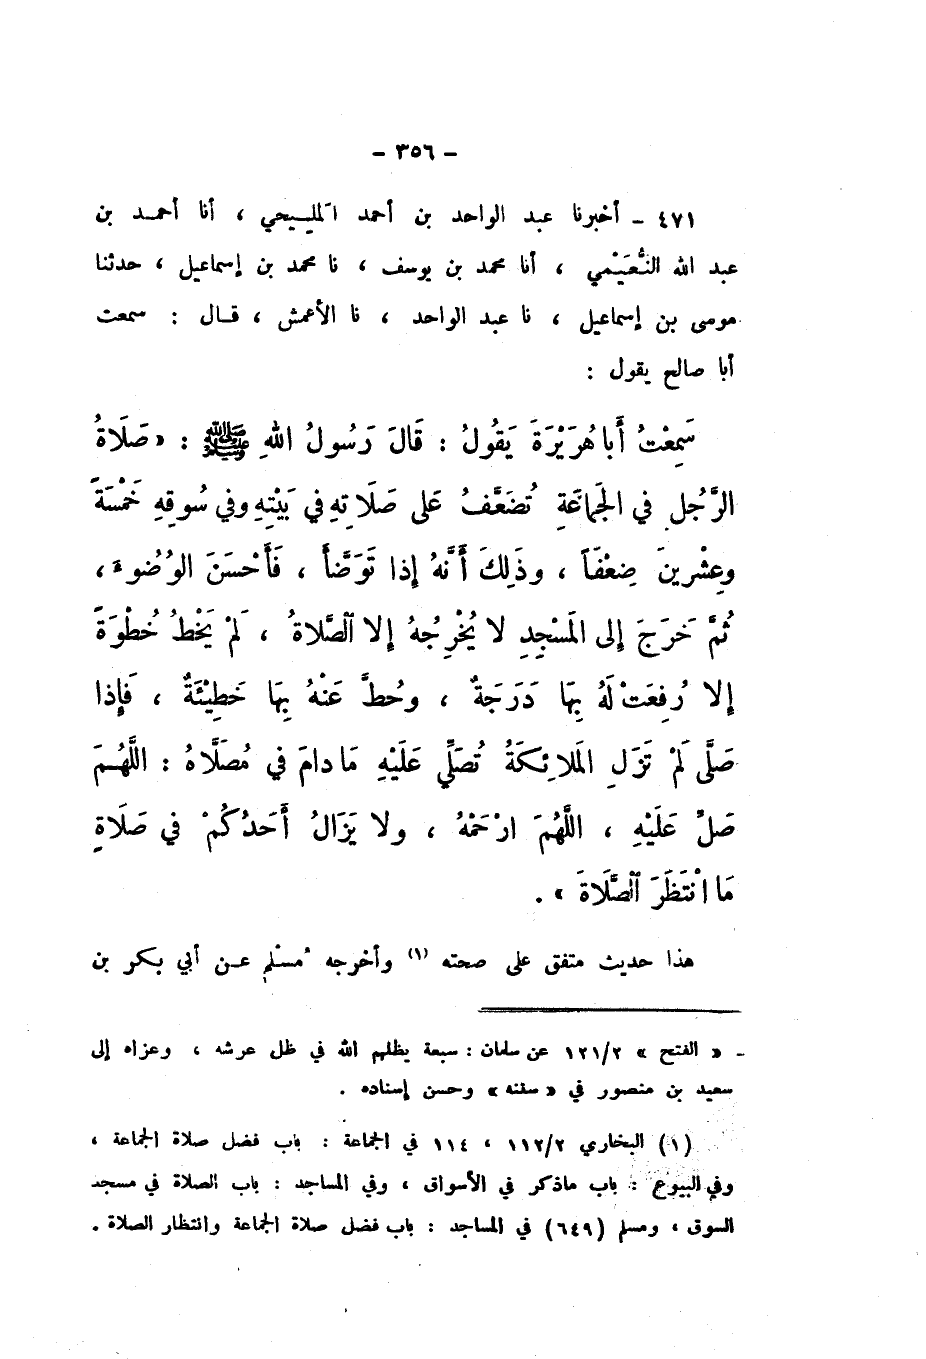 - ٣٥٦ -
٤٧١ - أخبرنا عبد الواحد بن أحمد المليحي ، أنا أحمد بن
عبد الله النُّعَيْمي ، أنا محمد بن يوسف ، نا محمد بن إسماعيل ، حدثنا
موسى بن إسماعيل ، نا عبد الواحد ، نا الأعمش ، قال : سمعت
أبا صالح يقول :
سَمِعْتُ أَبا هُرَيْرَةَ يَقُولُ : قَالَ رَسُولُ اللهِ ﷺ : « صَلَاةُ
الرَّجُلِ في الجَماعَةِ تُضَعَّفُ عَلى صَلَاتِهِ في بَيْتِهِ وفي سُوقِهِ خَمْسَةً
وعِشْرِينَ ضِعْفَاً ، وذَلِكَ أَنَّهُ إذا تَوَضَّأَ ، فَأَحْسَنَ الوُضُوءَ ،
ثُمَّ خَرَجَ إلى المَسْجِدِ لا يُخْرِجُهُ إلا الصَّلاةُ ، لَمْ يَخْطُ خُطْوَةً
إلا رُفِعَتْ لَهُ بِهَا دَرَجَةٌ ، وحُطَّ عَنْهُ بِهَا خَطِيْئَةٌ ، فَإذا
صَلَّى لَمْ تَزَلِ المَلائِكَةُ تُصَلِّي عَلَيْهِ مَا دامَ في مُصَلَّاهُ : اللَّهُمَّ
صَلِّ عَلَيْهِ ، اللَّهُمَّ ارْحَمْهُ ، ولا يَزَالُ أَحَدُكُمْ في صَلَاةٍ
مَا انْتَظَرَ الصَّلَاةَ » .
هذا حديث متفق على صحته (١) وأخرجه مسلم عن أبي بكر بن
- « الفتح » ١٢١/٢ عن سلمان : سبعة يظلهم الله في ظل عرشه ، وعزاه إلى
سعيد بن منصور في « سننه » وحسن إسناده .
(١) البخاري ١١٢/٢ ، ١١٤ في الجماعة : باب فضل صلاة الجماعة ،
وفي البيوع : باب ماذكر في الأسواق ، وفي المساجد : باب الصلاة في مسجد
السوق ، ومسلم (٦٤٩) في المساجد : باب فضل صلاة الجماعة وانتظار الصلاة .